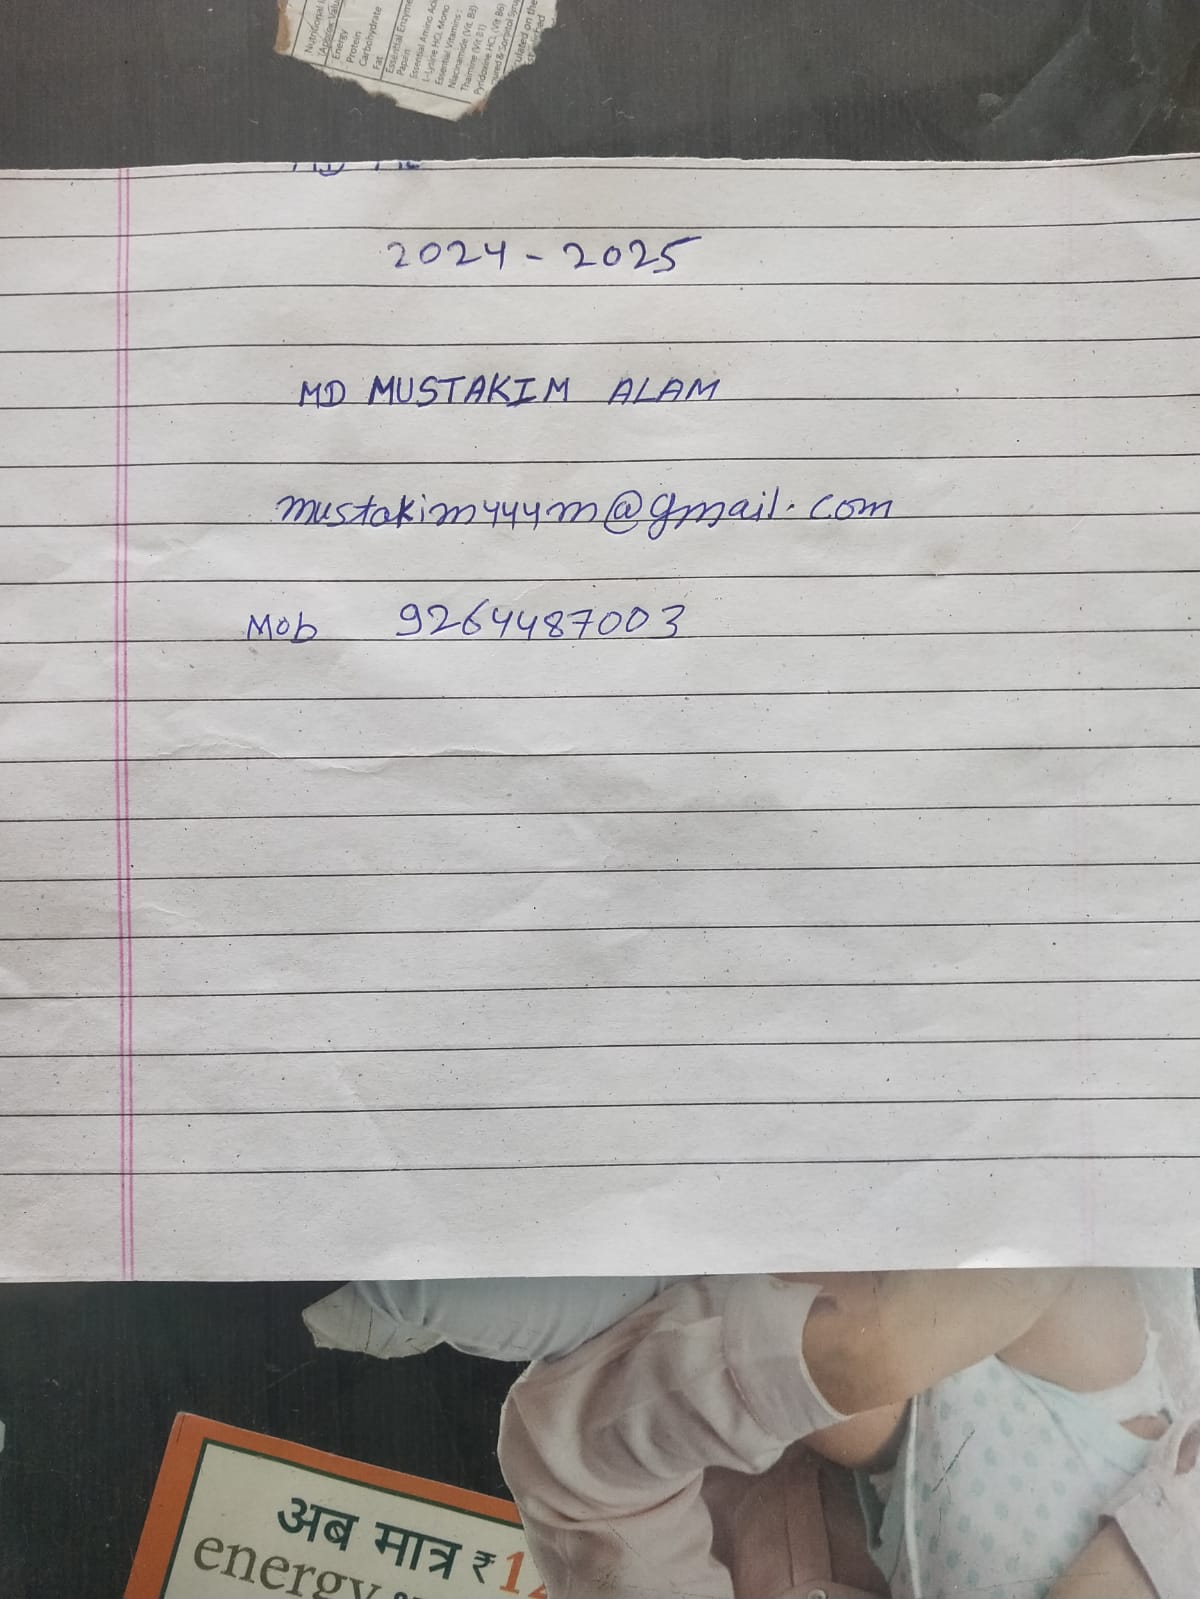 Nutritional I
(Approx Valu
Energy
Protein
Carbohydrate
Fat
Essential Enzyme
Papain
Essential Amino Aci
L-Lysine HCL Mono
Essential Vitamins:
Niacinamide (Vit. B3)
Thaimine (Vit B1)
Pyridoxine HCL (Vit B6)
oured & Sorbitol Syru
culated on the
2024 - 2025
MD MUSTAKIM ALAM
mustakim444m@gmail.com
Mob 9264487003
अब मात्र ₹1
energy